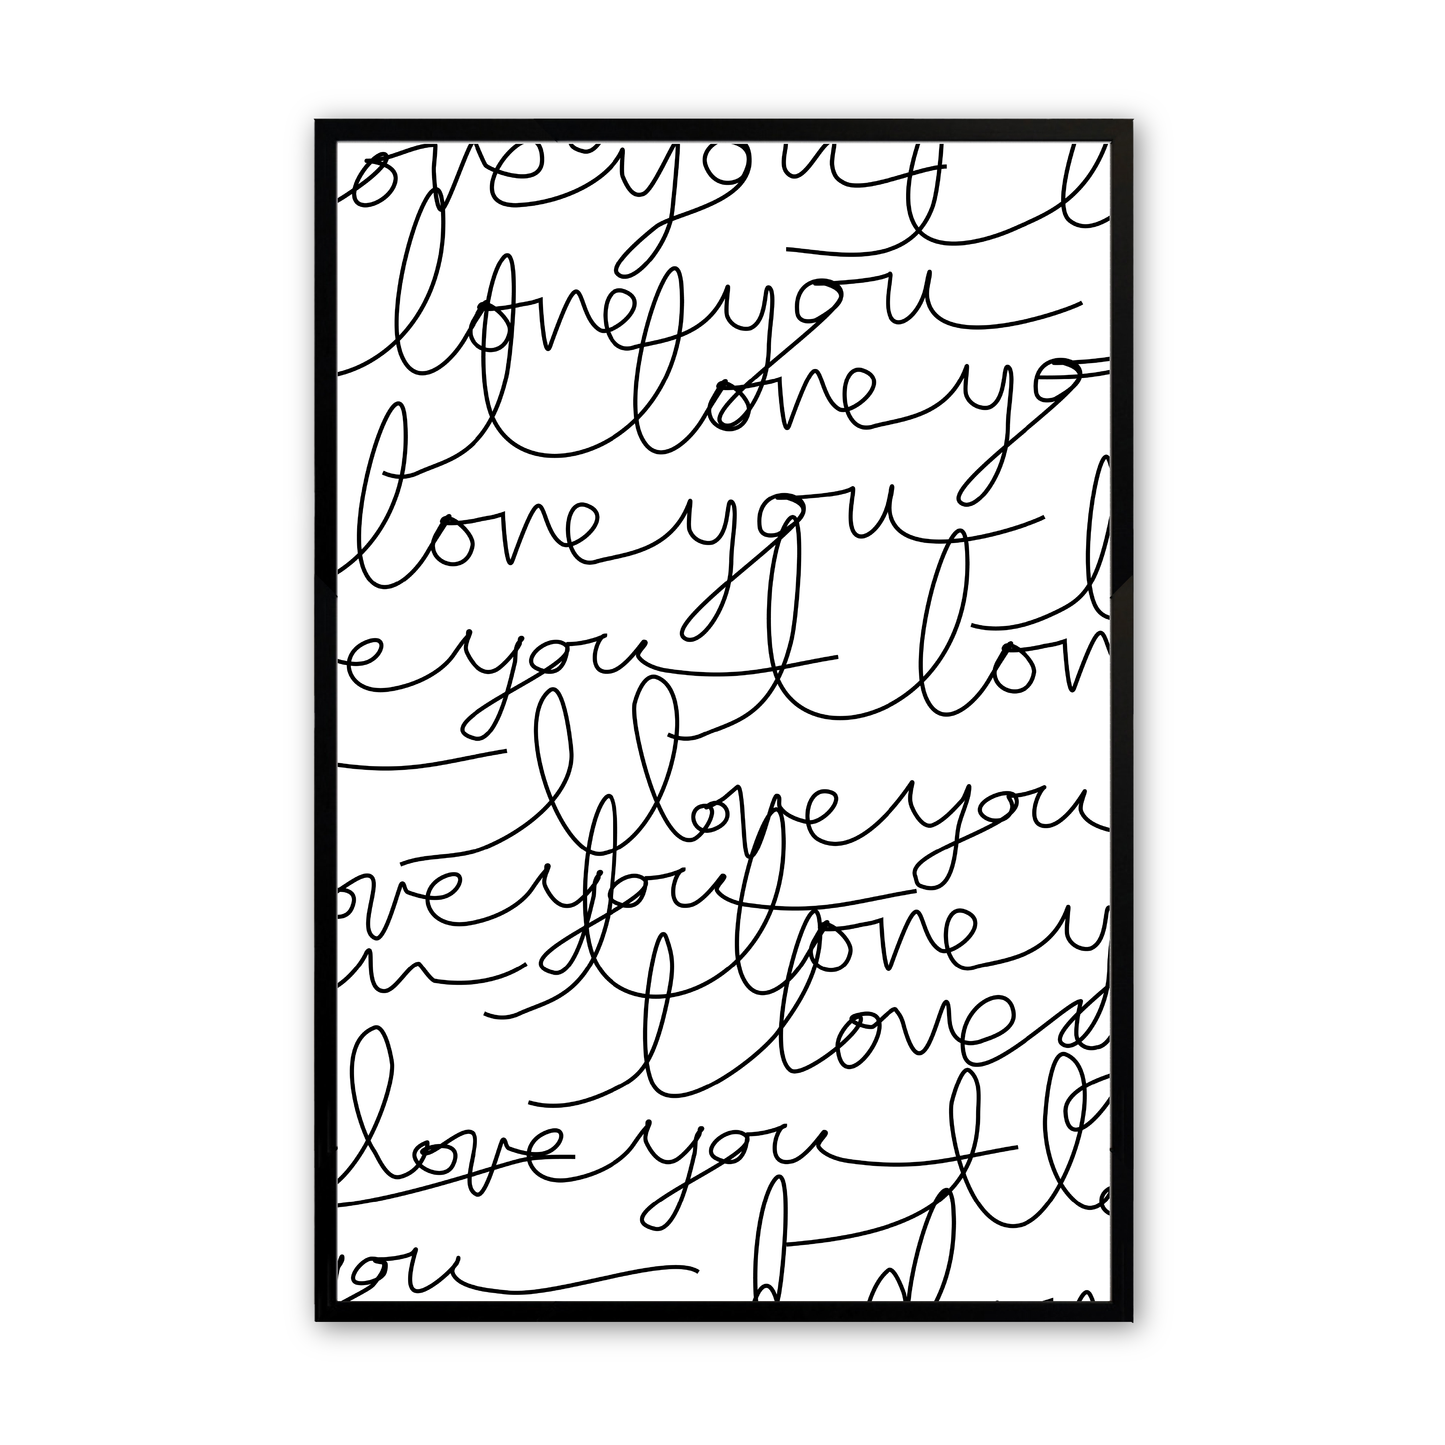 ove you I l
love you
I love yo
love you
I l
e you I lov
I love you
ove you I love y
u
I love y
love you I lo
you